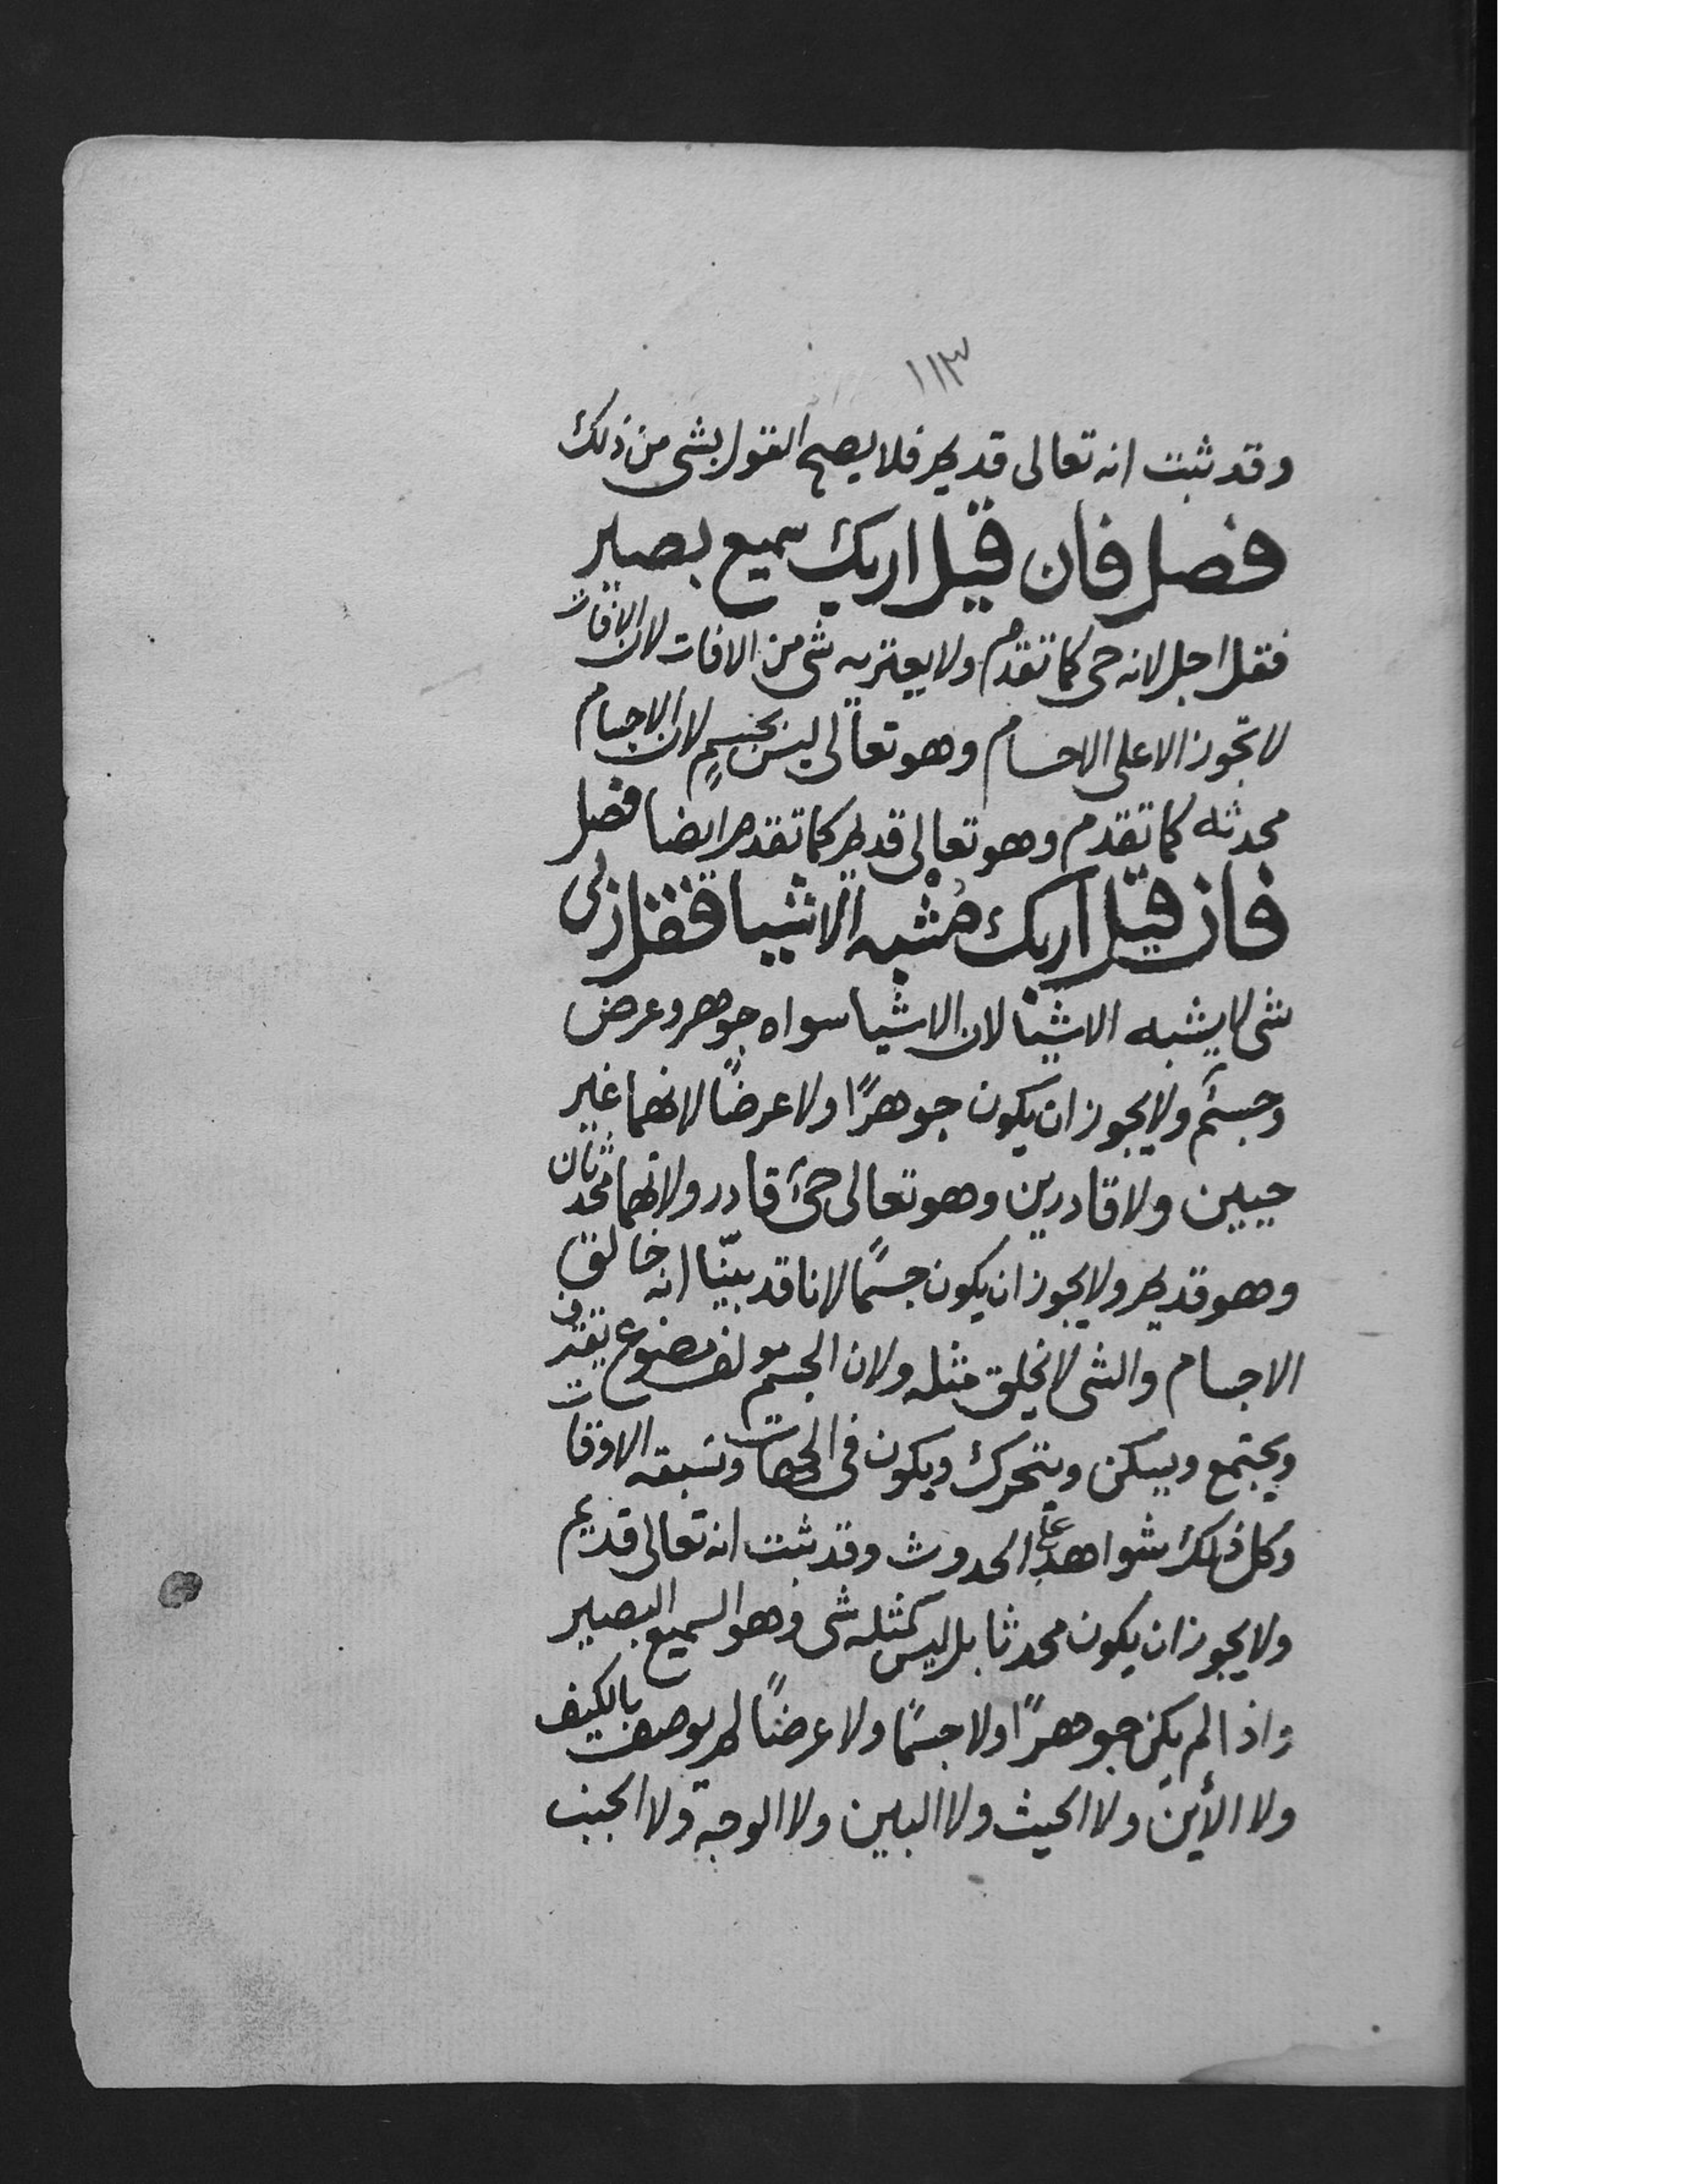 ١١٣
وقد ثبت انه تعالى قديم فلا يصح القول بشى من ذلك
فصل فان قيل اربك سميع بصير
فقل اجل لانه حى كما تقدم ولا يعتريه شى من الافات لان الافات
لا تجوز الا على الاجسام وهو تعالى ليس بجسمٍ لان الاجسام
محدثه كما تقدم وهو تعالى قديم كما تقدم ايضا فصل
فان قيل اربك مُشْبه الاشيا فقل ربى
شى لا يشبه الاشيا لان الاشيا سواه جوهر وعرض
وجسم ولا يجوز ان يكون جوهرًا ولا عرضًا لانهما غير
حيين ولا قادرين وهو تعالى حى قادر ولانهما محدثان
وهو قديم ولا يجوز ان يكون جسمًا لانا قد بيّنا انه خالق
الاجسام والشى لا يخلق مثله ولان الجسم مولف مصنوع يفترق
ويجتمع ويسكن ويتحرك ويكون فى الجهات وتسبقه الاوقات
وكل ذلك شواهد على الحدوث وقد ثبت انه تعالى قديم
ولا يجوز ان يكون محدثا بل ليس كمثله شى وهو السميع البصير
واذا لم يكن جوهرًا ولا جسمًا ولا عرضًا لم يوصف بالكيف
ولا الأين ولا الحيث ولا البين ولا الوجه ولا الجنب